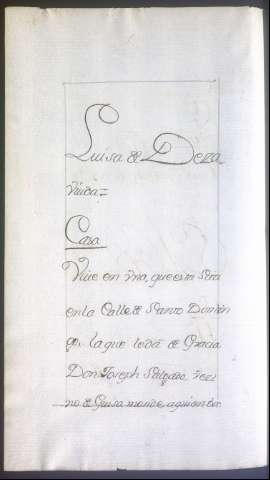 Luisa de Deza
viuda =
Casa
Viue en vna, que esta sita
en la Calle de Santo Domin
go, la que le da de Gracia
Don Joseph Salgado, vezi
no de